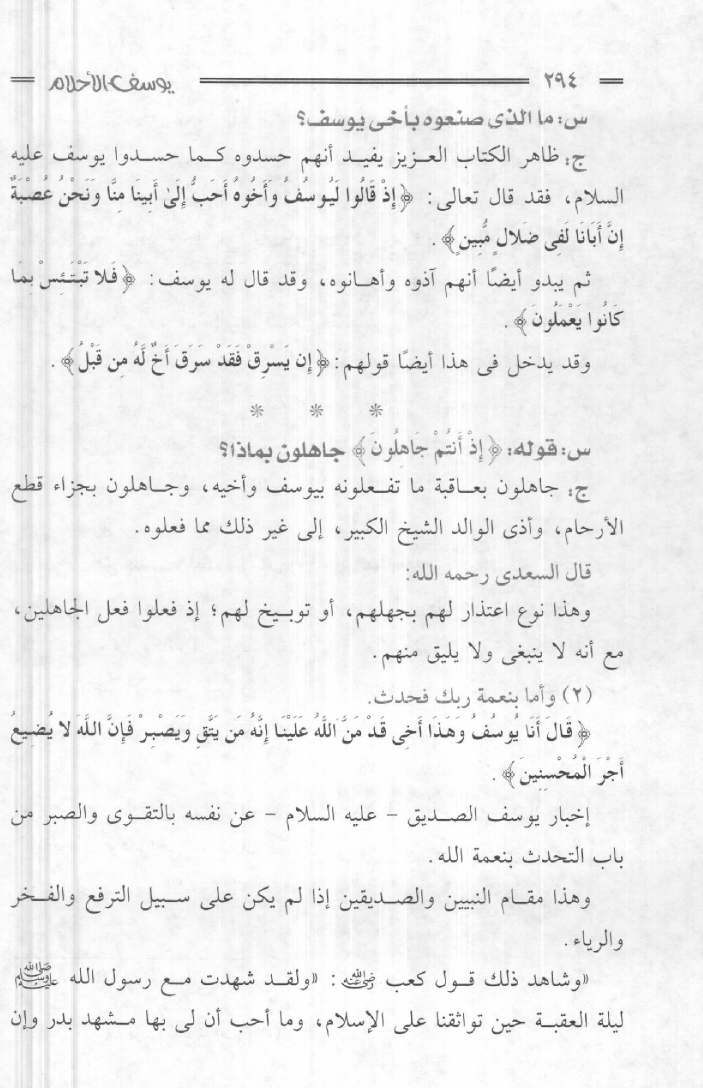 ٢٩٤ يوسف الأحلام
س: ما الذى صنعوه بأخى يوسف؟
ج: ظاهر الكتاب العـزيز يفيـد أنهم حسدوه كـما حسـدوا يوسف عليه
السلام، فقد قال تعالى: ﴿إِذْ قَالُوا لَيُوسُفُ وَأَخُوهُ أَحَبُّ إِلَىٰ أَبِينَا مِنَّا وَنَحْنُ عُصْبَةٌ
إِنَّ أَبَانَا لَفِى ضَلالٍ مُّبِينٍ﴾.
ثم يبدو أيضًا أنهم آذوه وأهـانوه، وقد قال له يوسف: ﴿فَلا تَبْتَئِسْ بِمَا
كَانُوا يَعْمَلُونَ﴾.
وقد يدخل فى هذا أيضًا قولهم: ﴿إِن يَسْرِقْ فَقَدْ سَرَقَ أَخٌ لَّهُ مِن قَبْلُ﴾.
* * *
س: قوله: ﴿إِذْ أَنتُمْ جَاهِلُونَ﴾ جاهلون بماذا؟
ج: جاهلون بعـاقبة ما تفـعلونه بيوسف وأخيه، وجـاهلون بجزاء قطع
الأرحام، وأذى الوالد الشيخ الكبير، إلى غير ذلك مما فعلوه.
قال السعدى رحمه الله:
وهذا نوع اعتذار لهم بجهلهم، أو توبـيخ لهم؛ إذ فعلوا فعل الجاهلين،
مع أنه لا ينبغى ولا يليق منهم.
(٢) وأما بنعمة ربك فحدث.
﴿قَالَ أَنَا يُوسُفُ وَهَذَا أَخِى قَدْ مَنَّ اللَّهُ عَلَيْنَا إِنَّهُ مَن يَتَّقِ وَيَصْبِرْ فَإِنَّ اللَّهَ لا يُضِيعُ
أَجْرَ الْمُحْسِنِينَ﴾.
إخبار يوسف الصـديق - عليه السلام - عن نفسه بالتقـوى والصبر من
باب التحدث بنعمة الله.
وهذا مقـام النبيين والصـديقين إذا لم يكن على سـبيل الترفع والفـخر
والرياء.
«وشاهد ذلك قـول كعب رضي الله عنه: «ولقـد شهدت مـع رسول الله ﷺ
ليلة العقبـة حين تواثقنا على الإسلام، وما أحب أن لى بها مـشهد بدر وإن